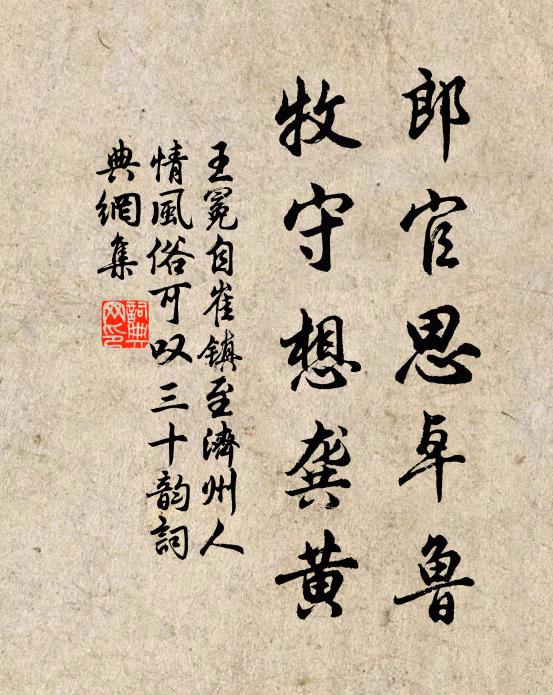 郎官思卓魯
牧守想龔黄
王冕自崔鎮至濟州人
情風俗可叹三十韵詞
典網集
詞典
网印